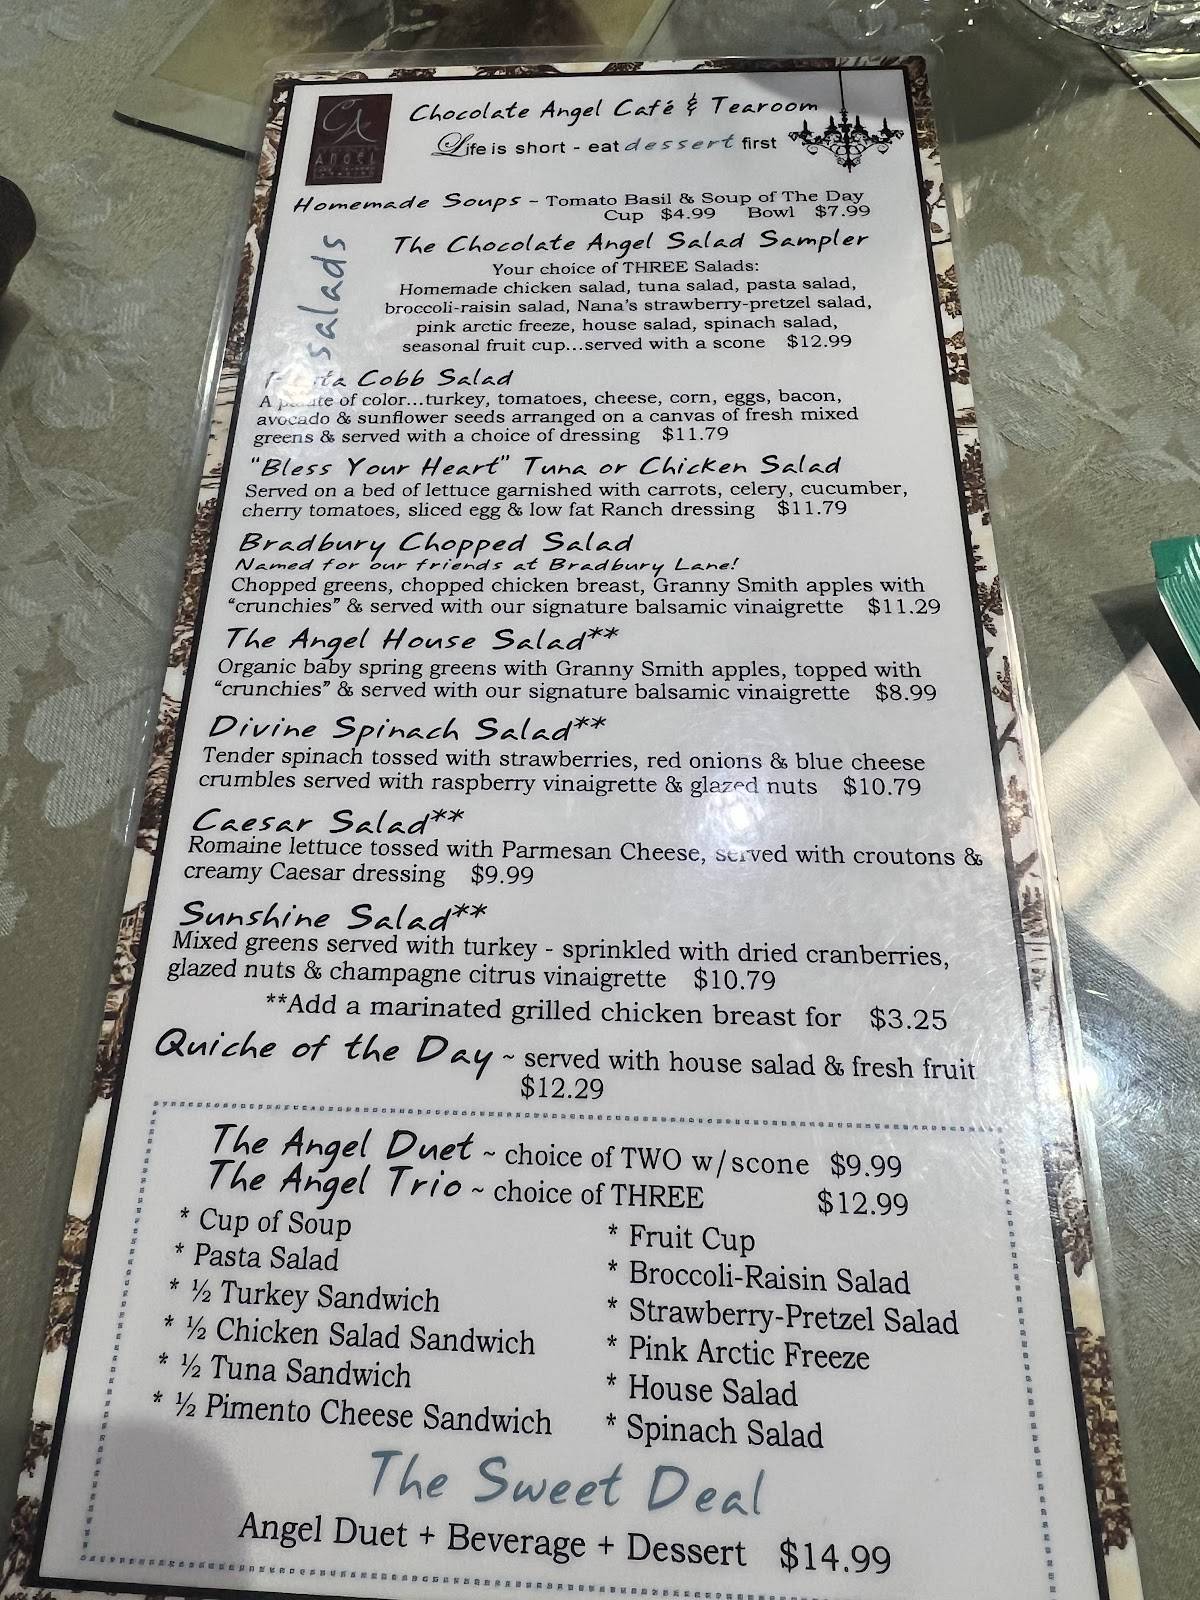 CA
ANGEL
Chocolate Angel Café & Tearoom
Life is short - eat dessert first
Homemade Soups - Tomato Basil & Soup of The Day
Cup $4.99 Bowl $7.99
salads
The Chocolate Angel Salad Sampler
Your choice of THREE Salads:
Homemade chicken salad, tuna salad, pasta salad,
broccoli-raisin salad, Nana's strawberry-pretzel salad,
pink arctic freeze, house salad, spinach salad,
seasonal fruit cup...served with a scone $12.99
Cobb Salad
A of color...turkey, tomatoes, cheese, corn, eggs, bacon,
avocado & sunflower seeds arranged on a canvas of fresh mixed
greens & served with a choice of dressing $11.79
"Bless Your Heart" Tuna or Chicken Salad
Served on a bed of lettuce garnished with carrots, celery, cucumber,
cherry tomatoes, sliced egg & low fat Ranch dressing $11.79
Bradbury Chopped Salad
Named for our friends at Bradbury Lane!
Chopped greens, chopped chicken breast, Granny Smith apples with
"crunchies" & served with our signature balsamic vinaigrette $11.29
The Angel House Salad**
Organic baby spring greens with Granny Smith apples, topped with
"crunchies" & served with our signature balsamic vinaigrette $8.99
Divine Spinach Salad**
Tender spinach tossed with strawberries, red onions & blue cheese
crumbles served with raspberry vinaigrette & glazed nuts $10.79
Caesar Salad**
Romaine lettuce tossed with Parmesan Cheese, served with croutons &
creamy Caesar dressing $9.99
Sunshine Salad**
Mixed greens served with turkey - sprinkled with dried cranberries,
glazed nuts & champagne citrus vinaigrette $10.79
**Add a marinated grilled chicken breast for $3.25
Quiche of the Day ~ served with house salad & fresh fruit
$12.29
The Angel Duet ~ choice of TWO w/scone $9.99
The Angel Trio ~ choice of THREE $12.99
* Cup of Soup
* Pasta Salad
* ½ Turkey Sandwich
* ½ Chicken Salad Sandwich
* ½ Tuna Sandwich
* ½ Pimento Cheese Sandwich
* Fruit Cup
* Broccoli-Raisin Salad
* Strawberry-Pretzel Salad
* Pink Arctic Freeze
* House Salad
* Spinach Salad
The Sweet Deal
Angel Duet + Beverage + Dessert $14.99